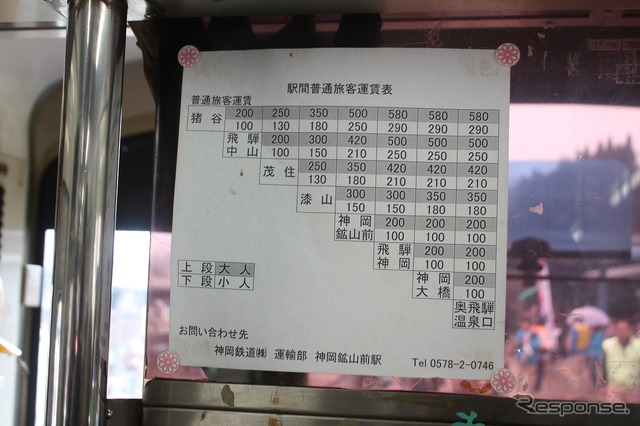 駅間普通旅客運賃表
普通旅客運賃
猪谷 200 250 350 500 580 580 580
100 130 180 250 290 290 290
飛騨 200 300 420 500 500 500
中山 100 150 210 250 250 250
茂住 250 350 420 420 420
130 180 210 210 210
漆山 300 300 350 350
150 150 180 180
神岡 200 200 200
鉱山前 100 100 100
飛騨 200 200
神岡 100 100
神岡 200
大橋 100
奥飛騨
温泉口
上段 大人
下段 小人
お問い合わせ先
神岡鉄道㈱ 運輸部 神岡鉱山前駅
Tel 0578-2-0746
Response.